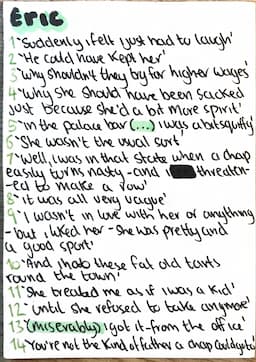 ERIC
1 "Suddenly i felt i just had to laugh'
2 "He could have kept her'
3 "Why shouldn't they try for higher wages'
4 "Why she should have been sacked
just because she'd a bit more spirit'
5 "in the palace bar (...) i was a bit squiffy'
6 "She wasn't the usual sort'
7 "Well, i was in that state when a chap
easily turns nasty - and i threaten-
-ed to make a row'
8 "it was all very vague'
9 "i wasn't in love with her or anything
- but i liked her - she was pretty and
a good sport'
10 "And i hate these fat old tarts
round the town'
11 "She treated me as if i was a kid'
12 "until she refused to take anymore'
13 "(miserably) i got it - from the office'
14 "You're not the kind of father a chap could go to'